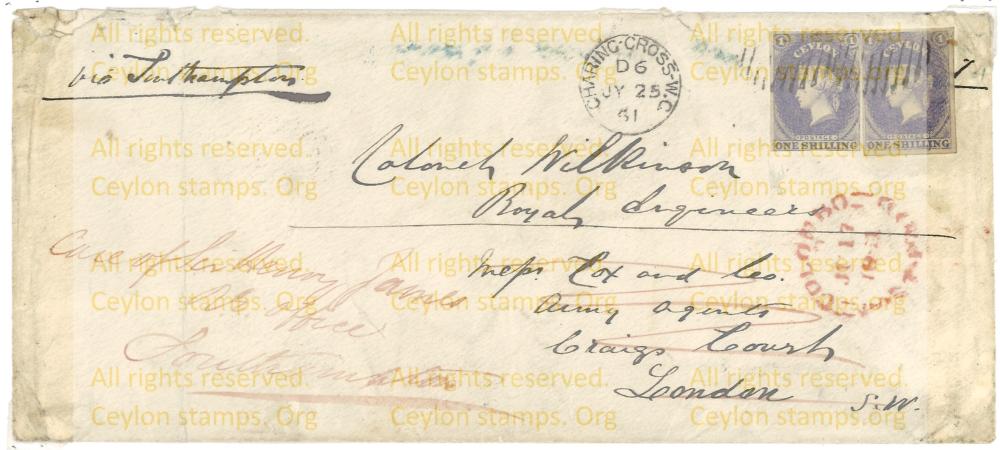 via Southampton
CHARING-CROSS-W.C
D6
JY 25
61
CEYLON
POSTAGE
ONE SHILLING
CEYLON
POSTAGE
ONE SHILLING
Colonel Wilkinson
Royal Engineers
COLOMBO
17
Messrs. Cox and Co.
Army agents
Craigs Court
London
S.W.
Care of Sir Henry James
office
Southampton
All rights reserved. All rights reserved. All rights reserved.
Ceylon stamps. Org Ceylon stamps. Org Ceylon stamps. Org
All rights reserved. All rights reserved. All rights reserved.
Ceylon stamps. Org Ceylon stamps. Org Ceylon stamps. Org
All rights reserved. All rights reserved. All rights reserved.
Ceylon stamps. Org Ceylon stamps. Org Ceylon stamps. Org
All rights reserved. All rights reserved. All rights reserved.
Ceylon stamps. Org Ceylon stamps. Org Ceylon stamps. Org